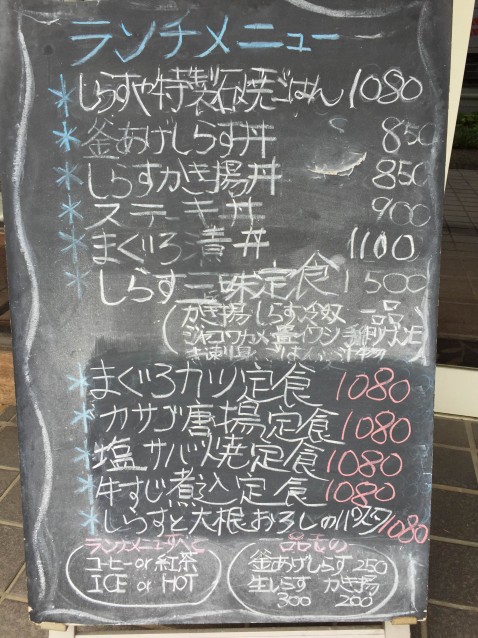 ランチメニュー
* しらすや特製石焼ごはん 1080
* 釜あげしらす丼 850
* しらすかき揚丼 850
* ステーキ丼 900
* まぐろ漬丼 1100
* しらす三昧定食 1500
かき揚 しらす 冷奴 一品
ジャコワカメ 畳イワシ
ごはん 汁物
* まぐろカツ定食 1080
* カサゴ唐揚定食 1080
* 塩サバ焼定食 1080
* 牛すじ煮込定食 1080
* しらすと大根おろしのパスタ 1080
ランチメニューすべて
コーヒー or 紅茶
ICE or HOT
一品もの
釜あげしらす 250
生しらす かき揚
300 200